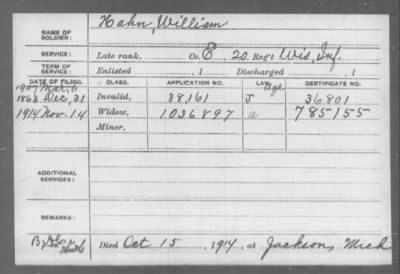 NAME OF SOLDIER: Hahn, William
SERVICE: Late rank, Co. E, 20 Reg't Wis, Inf.
TERM OF SERVICE: Enlisted , 1 Discharged , 1
DATE OF FILING. CLASS. APPLICATION NO. LAW. CERTIFICATE NO.
1907 Mar. 6 Age
1863 Dec, 31 Invalid, 38,161 J 36801
1914 Nov. 14 Widow, 1036.897 a 785155
Minor,
ADDITIONAL SERVICES:
REMARKS:
Died Oct 15, 1914, at Jackson, Mich